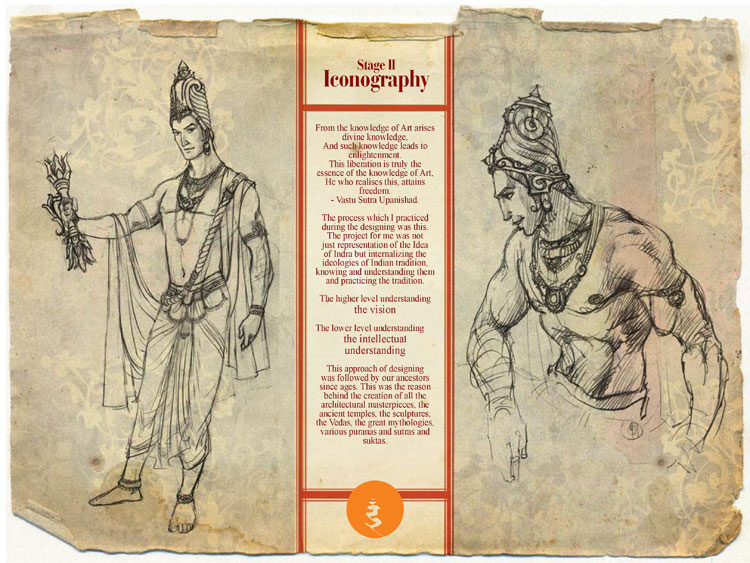 Stage II
Iconography
From the knowledge of Art arises
divine knowledge,
And such knowledge leads to
enlightenment.
This liberation is truly the
essence of the knowledge of Art,
He who realises this, attains
freedom.
- Vastu Sutra Upanishad.
The process which I practiced
during the designing was this.
The project for me was not
just representation of the Idea
of Indra but internalizing the
ideologies of Indian tradition,
knowing and understanding them
and practicing the tradition.
The higher level understanding
the vision
The lower level understanding
the intellectual
understanding
This approach of designing
was followed by our ancestors
since ages. This was the reason
behind the creation of all the
architectural masterpieces, the
ancient temples, the sculptures,
the Vedas, the great mythologies,
various puranas and sutras and
suktas.